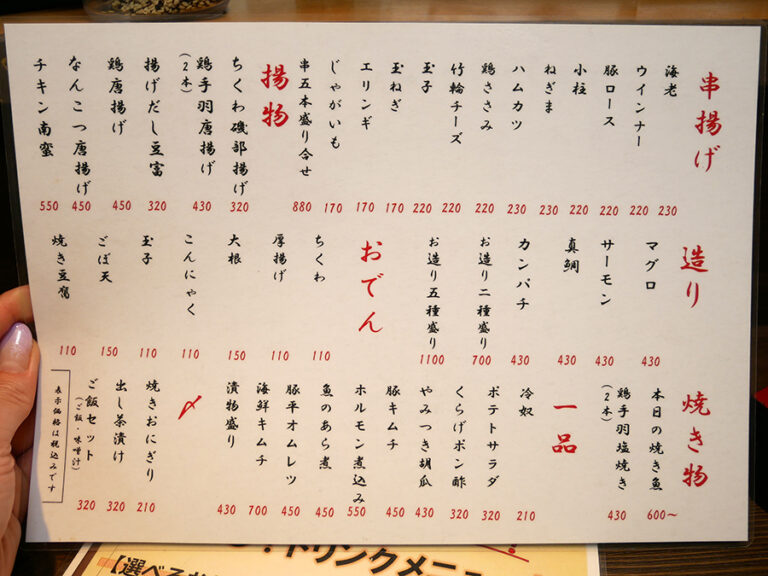 串揚げ
海老 230
ウインナー 220
豚ロース 220
小柱 220
ねぎま 230
ハムカツ 230
鶏ささみ 220
竹輪チーズ 220
玉子 220
玉ねぎ 170
エリンギ 170
じゃがいも 170
串五本盛り合せ 880
揚物
ちくわ磯部揚げ 320
鶏手羽唐揚げ 430
(2本)
揚げだし豆富 320
鶏唐揚げ 450
なんこつ唐揚げ 450
チキン南蛮 550
造り
マグロ 430
サーモン 430
真鯛 430
カンパチ 430
お造り二種盛り 700
お造り五種盛り 1100
おでん
ちくわ 110
厚揚げ 110
大根 150
こんにゃく 110
玉子 110
ごぼ天 150
焼き豆腐 110
焼き物
本日の焼き魚 600〜
鶏手羽塩焼き 430
(2本)
一品
冷奴 210
ポテトサラダ 320
くらげポン酢 320
やみつき胡瓜 430
豚キムチ 450
ホルモン煮込み 550
魚のあら煮 450
豚平オムレツ 450
海鮮キムチ 700
漬物盛り 430
〆
焼きおにぎり 210
出し茶漬け 320
ご飯セット 320
(ご飯・味噌汁)
表示価格は税込みです
ドリンクメニュ